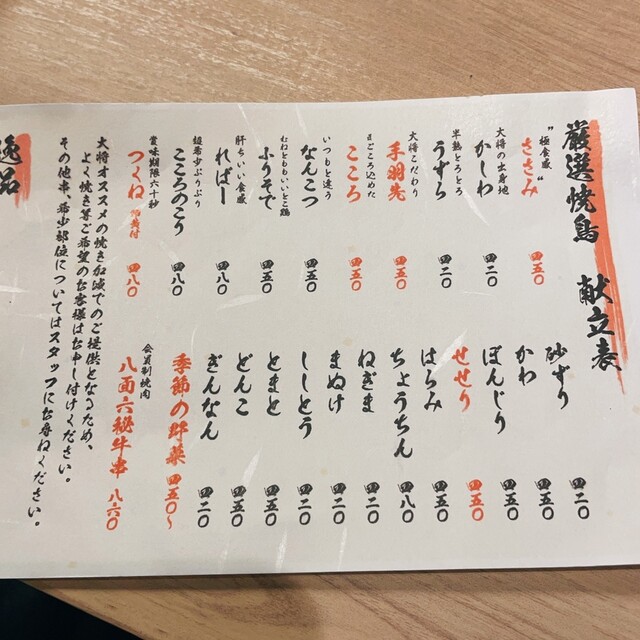 厳選焼鳥 献立表
"極食感"
ささみ 四五〇
大将の出身地
かしわ 四二〇
半熟とろとろ
うずら 四二〇
大将こだわり
手羽先 四五〇
まごころ込めた
こころ 四五〇
いつもと違う
なんこつ 四五〇
むねともももいいとこ鶏
ふりそで 四五〇
肝ちいい食感
ればー 四八〇
超希少ぷりぷり
こころのこり 四八〇
賞味期限六十秒
つくね 卵黄付 四八〇
砂ずり 四二〇
かわ 四五〇
ぼんじり 四五〇
せせり 四五〇
はらみ 四五〇
ちょうちん 四八〇
ねぎま 四二〇
まぬけ 四二〇
ししとう 四二〇
とまと 四五〇
どんこ 四五〇
ぎんなん 四二〇
季節の野菜 四五〇〜
会員制焼肉
八面六秘牛串 八六〇
大将オススメの焼き加減でのご提供となるため、
よく焼き等ご希望のお客様はお申し付けください。
その他串、希少部位についてはスタッフにお尋ねください。
逸品